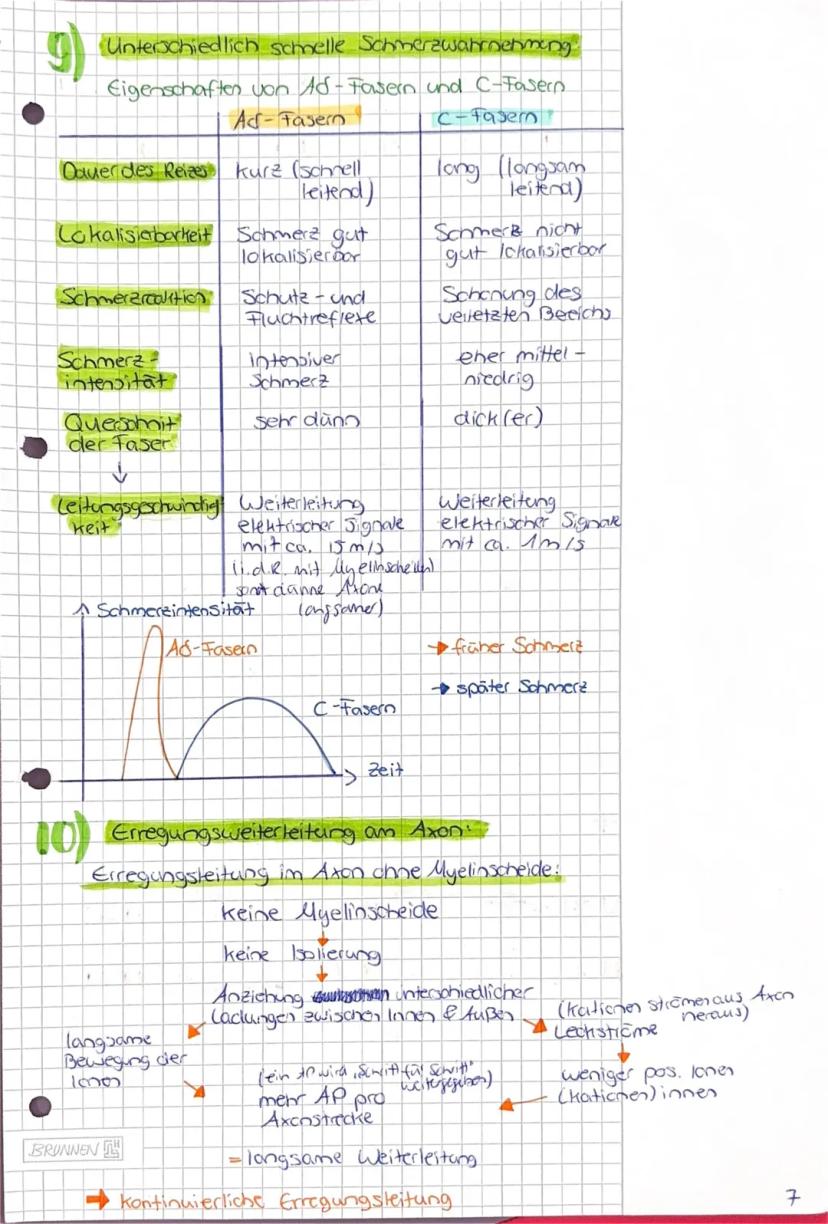 9) Unterschiedlich schnelle Schmerzwahrnehmung:
Eigenschaften von Aδ-Fasern und C-Fasern
Aδ-Fasern
C-Fasern
Dauer des Reizes
kurz (schnell
leitend)
lang (langsam
leitend)
Lokalisierbarkeit
Schmerz gut
lokalisierbar
Schmerz nicht
gut lokalisierbar
Schmerzreaktion
Schutz- und
Fluchtreflexe
Schonung des
verletzten Bereichs
Schmerz-
intensität
intensiver
Schmerz
eher mittel-
niedrig
Querschnitt
der Faser
sehr dünn
dick(er)
↓
Leitungsgeschwindig
keit
Weiterleitung
elektrischer Signale
mit ca. 15 m/s
(i.d.R. mit Myelinscheiden)
sonst dünne Axone
langsamer)
Weiterleitung
elektrischer Signale
mit ca. 1m/s
Schmerzintensität
Aδ-Fasern
C-Fasern
Zeit
→ früher Schmerz
→ später Schmerz
10) Erregungsweiterleitung am Axon:
Erregungsleitung im Axon ohne Myelinscheide:
keine Myelinscheide
keine Isolierung
Anziehung unterschiedlicher
Ladungen zwischen Innen & Außen
(Kationen strömen aus Axon
heraus)
Leckströme
langsame
Bewegung der
Ionen
(ein AP wird "Schritt für Schritt"
weitergegeben)
mehr AP pro
Axonstrecke
weniger pos. Ionen
(Kationen) innen
= langsame Weiterleitung
→ kontinuierliche Erregungsleitung
BRUNNEN
7